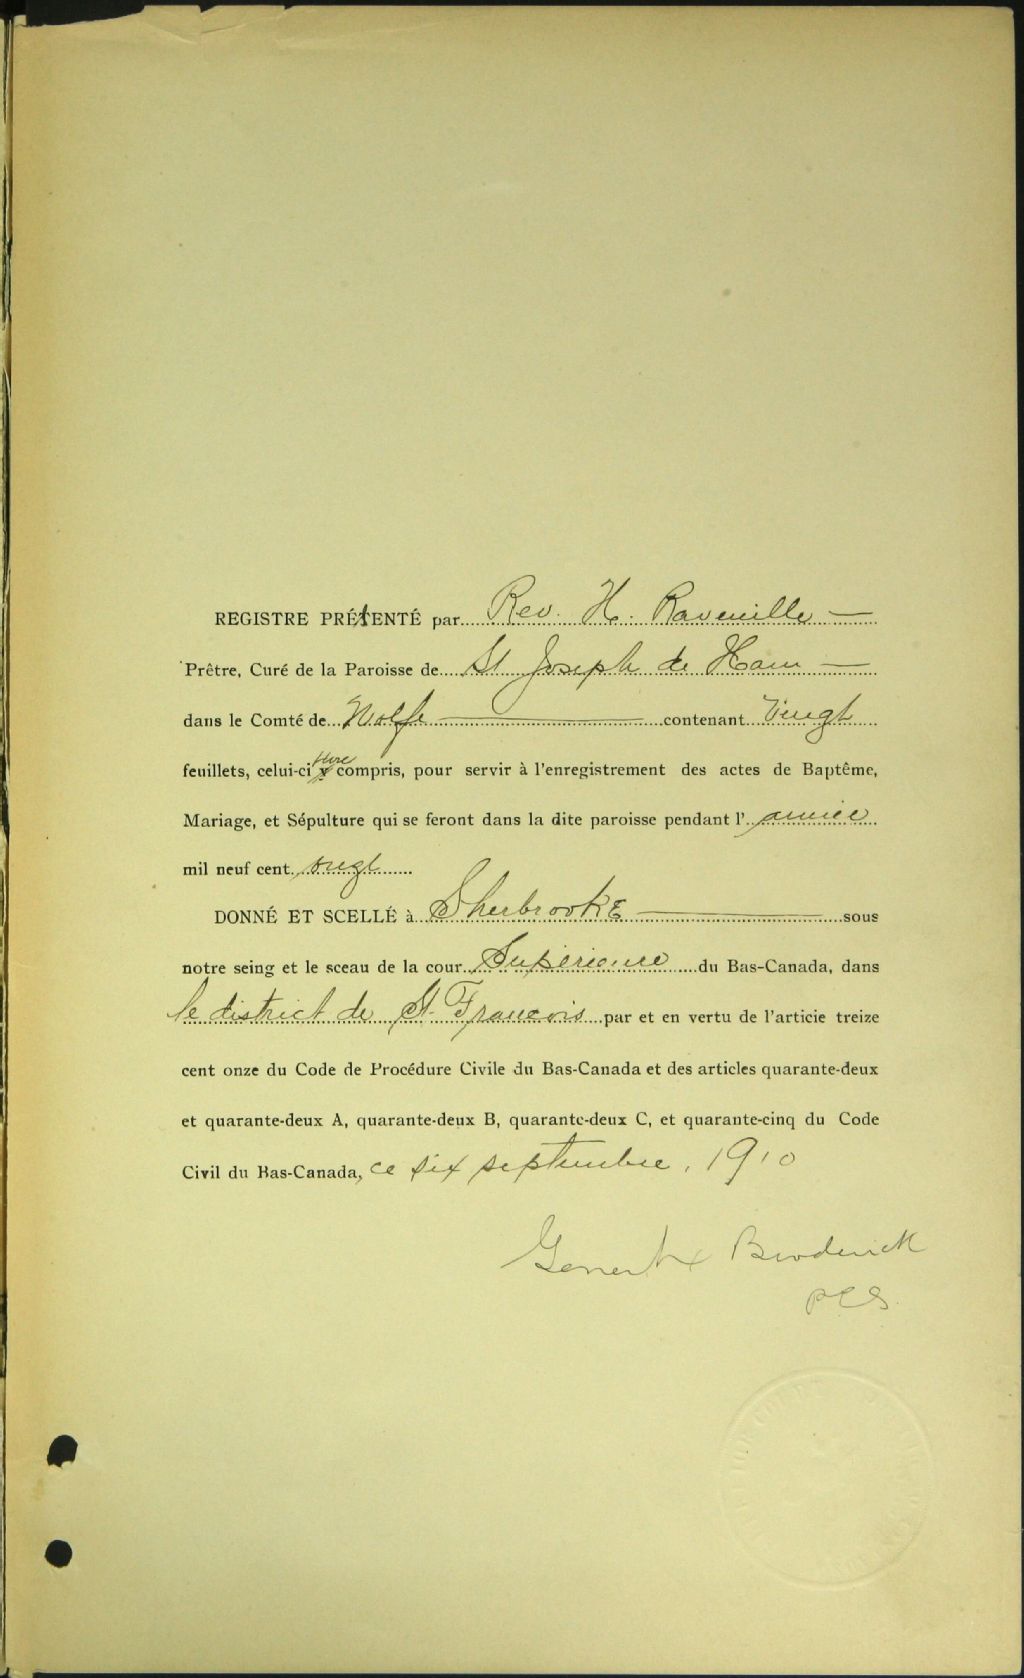 REGISTRE PRÉTENTÉ par Rev. H. Ravenille
Prêtre, Curé de la Paroisse de St Joseph de Ham
dans le Comté de Wolfe contenant Vingt
feuillets, celui-ci compris, pour servir à l'enregistrement des actes de Baptême,
Mariage, et Sépulture qui se feront dans la dite paroisse pendant l'année
mil neuf cent
DONNÉ ET SCELLÉ à Sherbrooke sous
notre seing et le sceau de la cour Supérieure du Bas-Canada, dans
le district de St. François par et en vertu de l'articie treize
cent onze du Code de Procédure Civile du Bas-Canada et des articles quarante-deux
et quarante-deux A, quarante-deux B, quarante-deux C, et quarante-cinq du Code
Civil du Bas-Canada, ce six septembre, 1910
Broderick
PCS